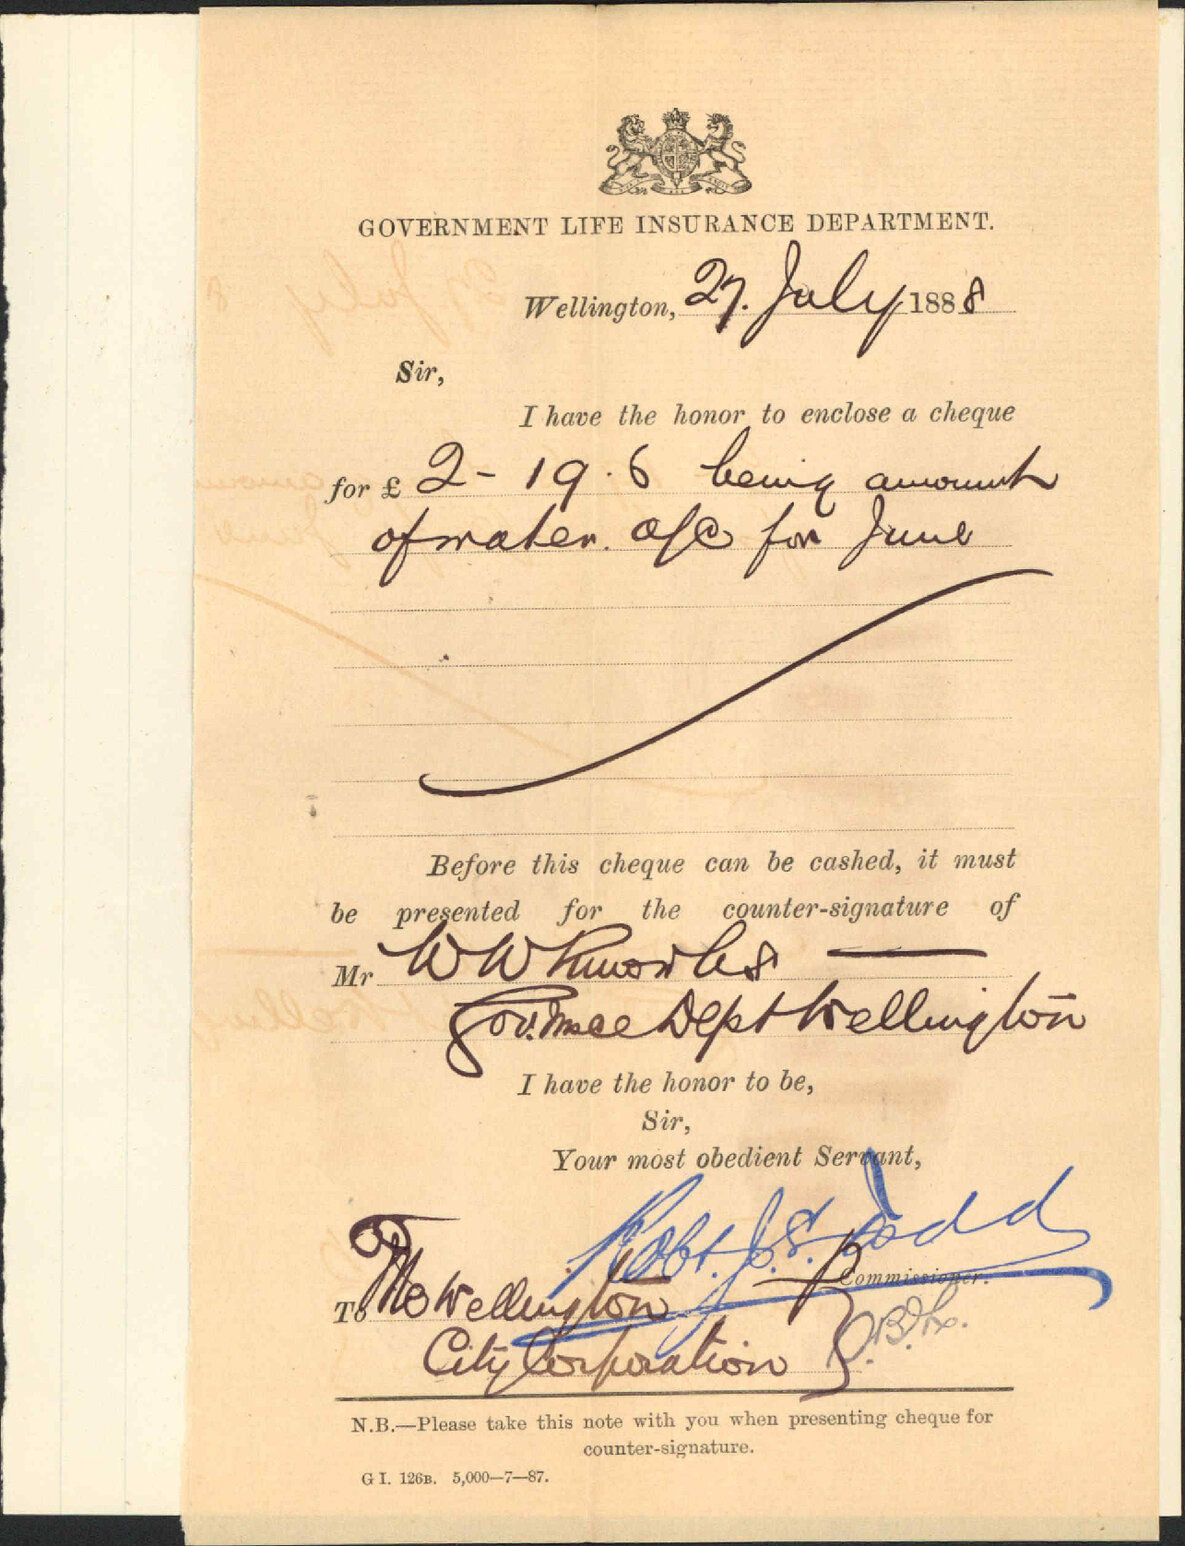 GOVERNMENT LIFE INSURANCE DEPARTMENT.
Wellington, 27. July 1888
Sir,
I have the honor to enclose a cheque
for £ 2 - 19 . 6 being amount
of water. a/c for June
Before this cheque can be cashed, it must
be presented for the counter-signature of
Mr W W Knowles
Gov. Insce Dept Wellington
I have the honor to be,
Sir,
Your most obedient Servant,
Robt. J. S. Todd
Commissioner.
To The Wellington
City Corporation
N.B.—Please take this note with you when presenting cheque for
counter-signature.
G I. 126B. 5,000—7—87.